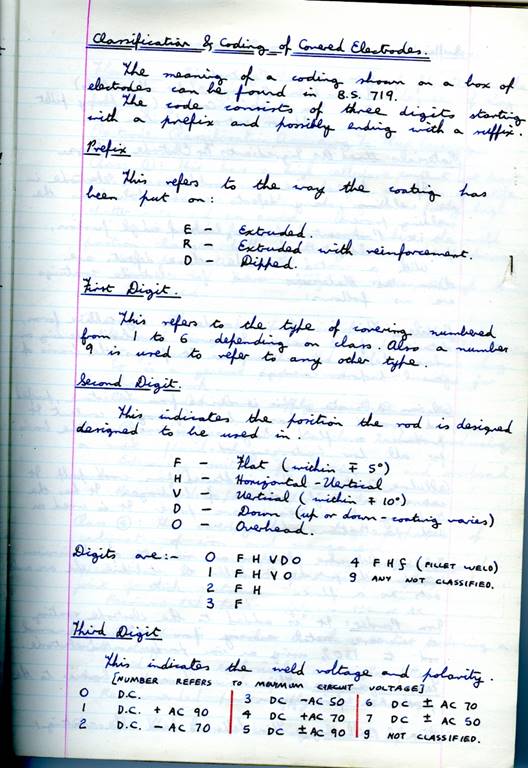 Classification & Coding of Covered Electrodes.
The meaning of a coding shown on a box of
electrodes can be found in B.S. 719.
The code consists of three digits starting
with a prefix and possibly ending with a suffix.
Prefix
This refers to the way the coating has
been put on :
E - Extruded.
R - Extruded with reinforcement.
D - Dipped.
First Digit.
This refers to the type of covering numbered
from 1 to 6 depending on class. Also a number
9 is used to refer to any other type.
Second Digit.
This indicates the position the rod is designed
designed to be used in.
F - Flat (within ∓ 5°)
H - Horizontal - Vertical
V - Vertical (within ∓ 10°)
D - Down (up or down - coating varies)
O - Overhead.
Digits are :- 0 F H V D O 4 F H f (FILLET WELD)
1 F H V O 9 ANY NOT CLASSIFIED.
2 F H
3 F
Third Digit
This indicates the weld voltage and polarity.
[NUMBER REFERS TO CIRCUIT VOLTAGE]
0 D.C. 3 DC - AC 50 6 DC ± AC 70
1 D.C. + AC 90 4 DC + AC 70 7 DC ± AC 50
2 D.C. - AC 70 5 DC ± AC 90 9 NOT CLASSIFIED.